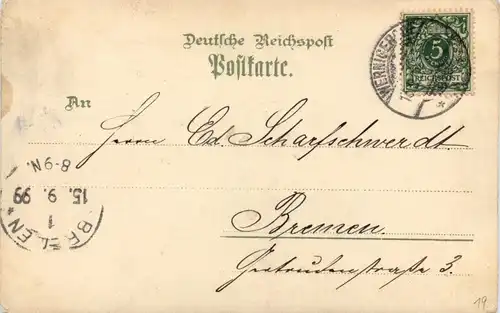 Deutsche Reichspost
Postkarte.
5
REICHSPOST
WERNIGERO
An
Herrn Ed. Scharfschwerdt.
Bremen.
Gertrudenstraße 3.
BREMEN
1
15. 9. 99
8-9N.
19